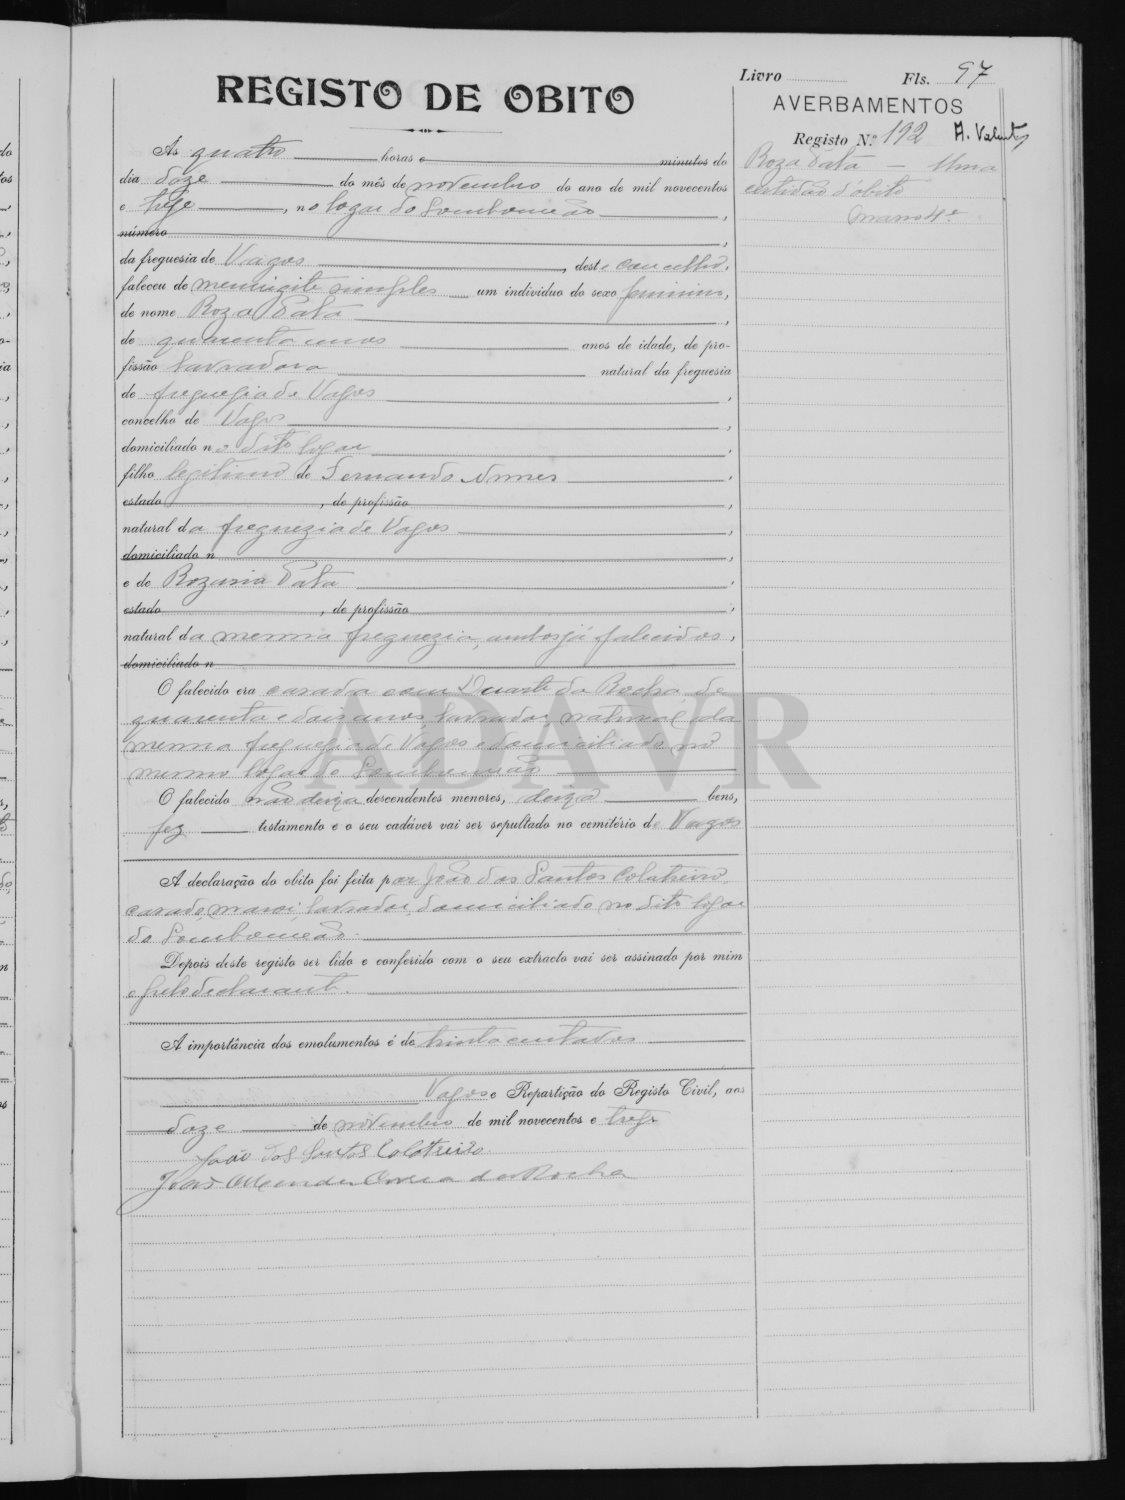 Livro Fls. 97
REGISTO DE OBITO
AVERBAMENTOS
Registo N.º 192 A. Valente
Às quatro horas e minutos do
dia doze do mês de novembro do ano de mil novecentos
e treze, no logar do Lombomeão,
número,
da freguesia de Vagos, deste concelho,
faleceu de meningite simples um individuo do sexo feminino,
de nome Roza Pata,
de quarenta annos anos de idade, de pro-
fissão lavradora natural da freguesia
de freguezia de Vagos,
concelho de Vagos,
domiciliado no dito logar,
filho legitimo de Fernando Nunes,
estado, de profissão,
natural da freguezia de Vagos,
domiciliado n,
e de Rozaria Pata,
estado, de profissão,
natural da mesma freguezia, ambos já falecidos,
domiciliado n
O falecido era casada com Duarte da Rocha de
quarenta e dois anos, lavrador, natural da
mesma freguezia de Vagos e domiciliado no
mesmo logar do Lombomeão
O falecido não deixa descendentes menores, deixa bens,
fez testamento e o seu cadáver vai ser sepultado no cemitério de Vagos
A declaração do obito foi feita por João dos Santos Colatreiro
casado, maior, lavrador, domiciliado no dito logar
do Lombomeão.
Depois deste registo ser lido e conferido com o seu extracto vai ser assinado por mim
e pelo declarante.
A importância dos emolumentos é de trinta centavos
Vagos e Repartição do Registo Civil, aos
doze de novembro de mil novecentos e treze
João dos Santos Colatreiro
João da Rocha
Roza Pata — Uma
certidão d'obito
ADAVR